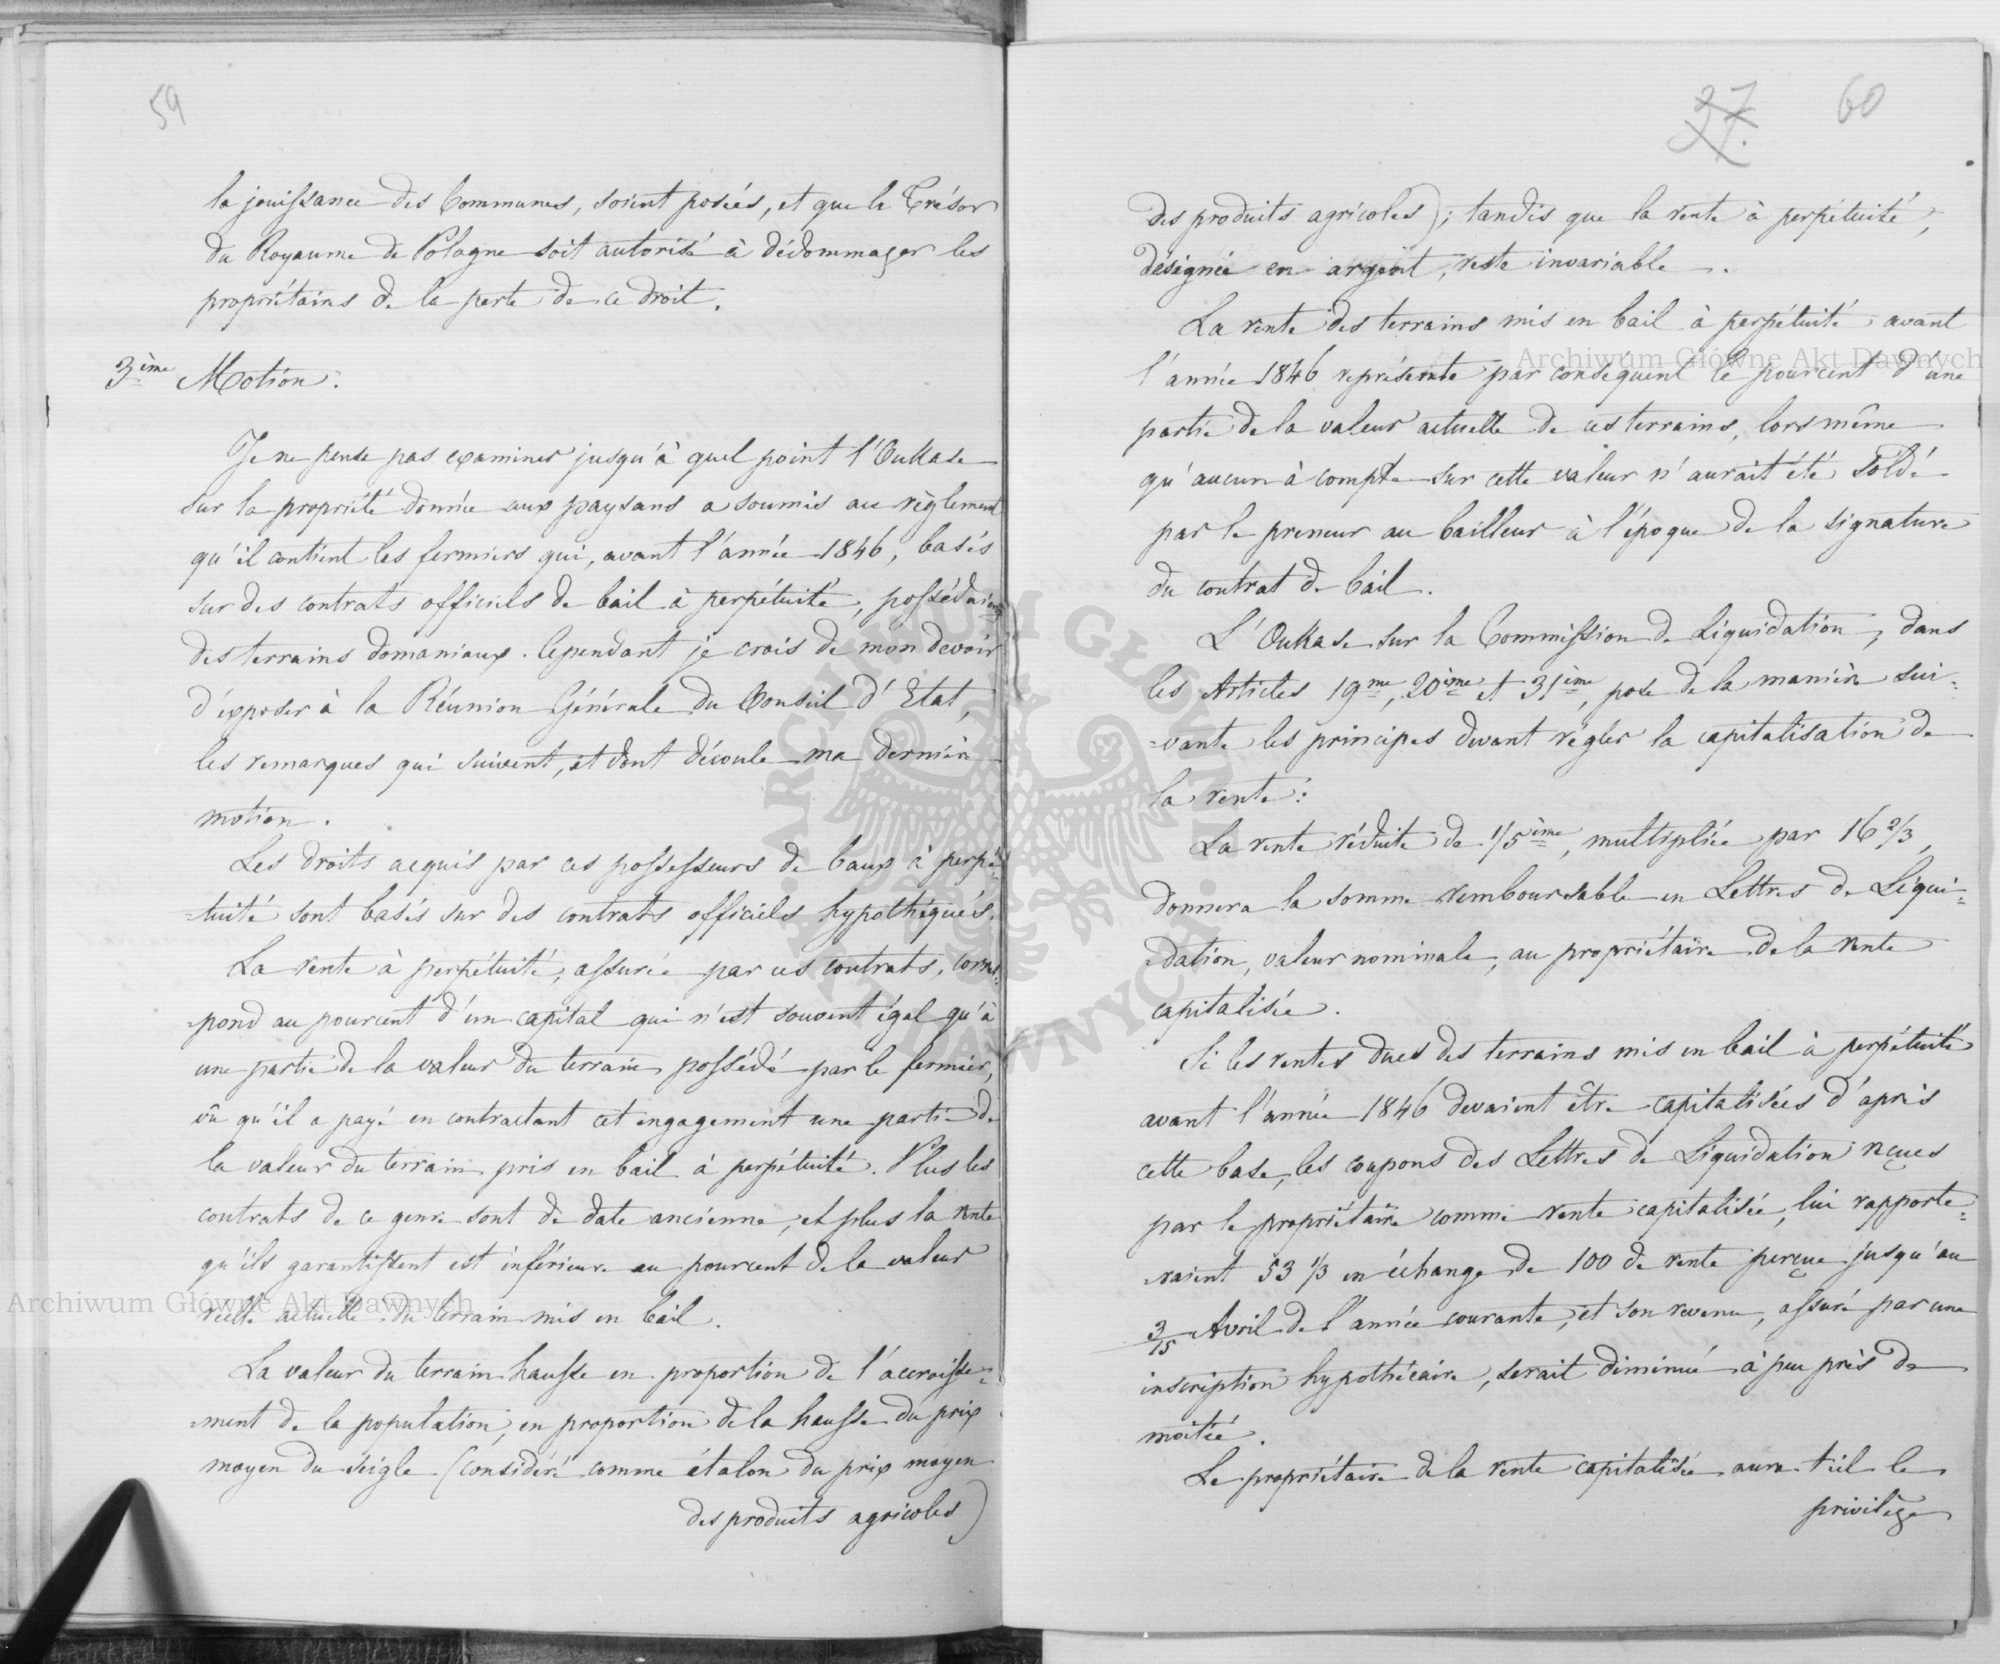 59
la jouissance des Communes, soient posées, et que le Trésor
du Royaume de Pologne soit autorisé à dédommager les
propriétaires de la perte de ce droit.
3ème Motion.
Je ne pense pas examiner jusqu'à quel point l'Oukase
sur la propriété donnée aux paysans a soumis au règlement
qu'il contient les fermiers qui, avant l'année 1846, basés
sur des contrats officiels de bail à perpétuité, possédaient
des terrains domaniaux. Cependant je crois de mon devoir
d'exposer à la Réunion Générale du Conseil d'Etat,
les remarques qui suivent, et dont découle ma dernière
motion.
Les droits acquis par ces possesseurs de baux à perpé-
-tuité sont basés sur des contrats officiels hypothéqués.
La rente à perpétuité, assurée par ces contrats, corres-
-pond au pourcent d'un capital qui n'est souvent égal qu'à
une partie de la valeur du terrain possédé par le fermier,
vû qu'il a payé en contractant cet engagement une partie de
la valeur du terrain pris en bail à perpétuité. Plus les
contrats de ce genre sont de date ancienne, et plus la rente
qu'ils garantissent est inférieure au pourcent de la valeur
réelle actuelle du terrain mis en bail.
La valeur du terrain hausse en proportion de l'accroisse-
-ment de la population, en proportion de la hausse du prix
moyen du seigle (considéré comme étalon du prix moyen
des produits agricoles)
27.
60
des produits agricoles); tandis que la rente à perpétuité,
désignée en argent, reste invariable.
La rente des terrains mis en bail à perpétuité avant
l'année 1846 représente par conséquent le pourcent d'une
partie de la valeur actuelle de ces terrains, lors même
qu'aucun à compte sur cette valeur n'aurait été soldé
par le preneur au bailleur à l'époque de la signature
du contrat de bail.
L'Oukase sur la Commission de Liquidation, dans
les Articles 19me, 20ème et 31ème, pose de la manière sui-
-vante les principes devant régler la capitalisation de
la rente:
La rente réduite de 1/5ème, multipliée par 16 2/3,
donnera la somme remboursable en Lettres de Liqui-
-dation, valeur nominale, au propriétaire de la rente
capitalisée.
Si les rentes dues des terrains mis en bail à perpétuité
avant l'année 1846 devaient être capitalisées d'après
cette base, les coupons des Lettres de Liquidation reçues
par le propriétaire comme rente capitalisée, lui rapporte-
-raient 53 1/3 en échange de 100 de rente perçue jusqu'au
3/15 Avril de l'année courante, et son revenu, assuré par une
inscription hypothécaire, serait diminué à peu près de
moitié.
Le propriétaire de la rente capitalisée aura-t-il le
privilège
Archiwum Główne Akt Dawnych
Archiwum Główne Akt Dawnych
ARCHIWUM GŁÓWNE AKT DAWNYCH